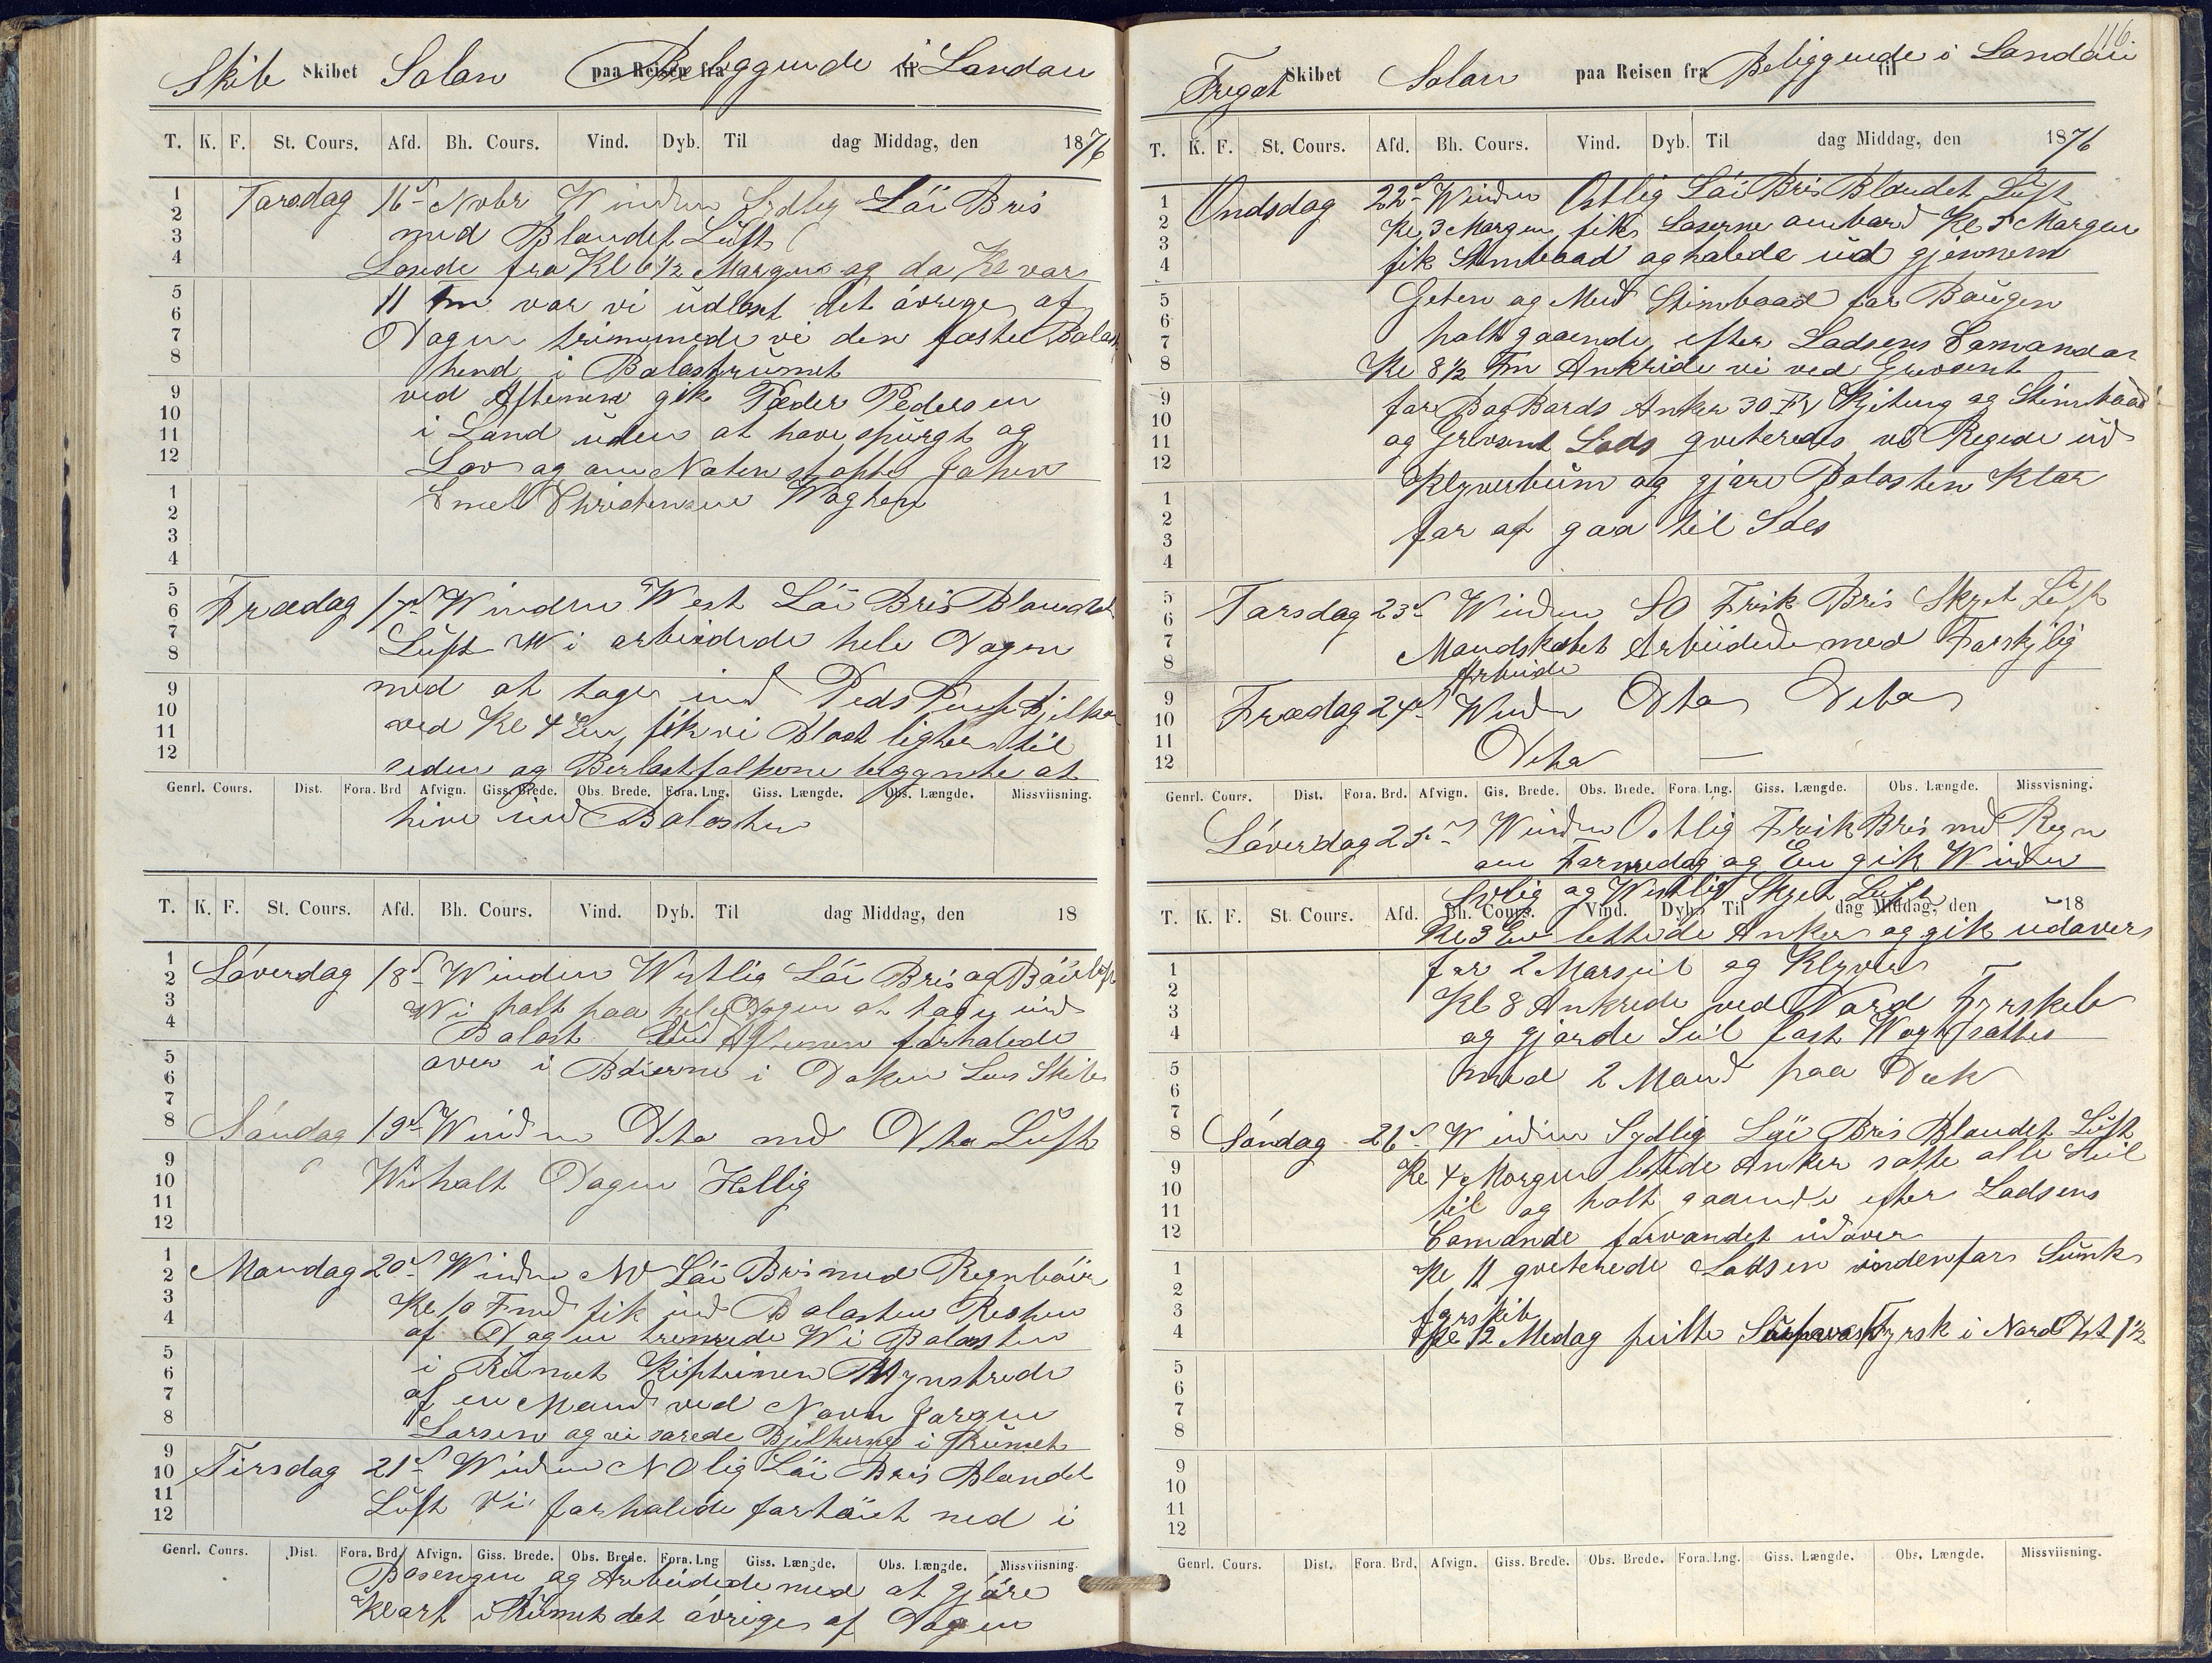 Skib Skibet Solon paa Reisen fra Beliggende til i Londau
T. K. F. St. Cours. Afd. Bh. Cours. Vind. Dyb. Til dag Middag, den 1876
Tarsdag 16d Nobr Winden Sydlig Löi Bris
med Blandet Lüft
Losede fra Kl 6 1/2 Margen og da Kl var
11 fm var vi üdlost det övrige af
Dagen trimmede vi den faste Balast
hend i Balastrümet
ved Aftenen gik Peder Pedersen
i Land uden at have spurgt og
Lov og om Naten
Emel Christensen
Fredag 17d Winden West Löi Bris Blandet
Lüft Wi arbeidede hele Dagen
med at tage ind
ved Kl 4 Em fik vi Blast ligter til
siden og Berlastfolkene begynte at
Genrl. Cours. Dist. Fora. Brd Afvign. Giss. Brede. Obs. Brede. Fora. Lng. Giss. Længde. Obs. Længde. Missviisning.
hive ind Balasten
T. K. F. St. Cours. Afd. Bh. Cours. Vind. Dyb. Til dag Middag, den 18
Löverdag 18d Winden Westlig Löi Bris og
Wi holt paa hele Dagen at tage ind
Balast Ved Aftenen forhalede
over i Böierne i Doken Los Skib
Söndag 19d Winden Dto med Dto Lüft
Wi holt Dagen Hellig
Mandag 20d Winden NV Löi Bris med Regnböier
Kl 10 Fmd fik ind Balasten Resten
af Dagen tremede Wi Balasten
i Rümet Kapteinen Mynstrede
af en Mand ved Navn Jorgen
Larsen og vi sarede Bjelkerne i Rümet
Tirsdag 21d Winden NOlig Löi Bris Blandet
Lüft Vi forhalede fartöiet ned i
Genrl. Cours. Dist. Fora. Brd. Afvign. Giss. Brede. Obs. Brede. Fora. Lng Giss. Længde. Obs. Længde. Missviisning.
Basengen og Arbeidede med at gjöre
Klart i Rümet det övrige af Dagen
116.
Fregat Skibet Solon paa Reisen fra Beliggende i til Londau
T. K. F. St. Cours. Afd. Bh. Cours. Vind. Dyb. Til dag Middag, den 1876
Ondsdag 22d Winden Ostlig Löi Bris Blandet Lüft
Kl 3 Margen fik Loserne ombord Kl 5 Margen
fik Stimbaad og halede üd gjennem
Geten og Med Stimbaad for Baugen
holt gaaende efter Lodsens Comandor
Kl 8 1/2 Fm Ankrede vi ved Grevsent
for BagBords Anker 30 Fv Kjeting og Stimbaad
og Grevsent Lods qviterede vi Regede üd
Klyverbüm og gjöre Balasten Klar
for at gaa til Söes
Tarsdag 23d Winden SO Frisk Bris Skyet Lüft
Mandskabet Arbeidede med Forskjelig
Arbeide
Fredag 24d Winden Dto Deto
Deto —
Genrl. Cours. Dist. Fora. Brd. Afvign. Gis. Brede. Obs. Brede. Fora. Lng. Giss. Længde. Obs. Længde. Missvisning.
Löverdag 25d Winden Ostlig Frisk Bris med Regn
om Formedag og Em gik Winden
Sylig og Westlig Skyet Luft
T. K. F. St. Cours. Afd. Bh. Cours. Vind. Dyb. Til dag Middag, den 18
Kl 3 Em lettede Anker og gik üdover
for 2 Marseil og Klyver
Kl 8 Ankrede ved Nord Fyrskib
og gjorde Seil fast Wagt sattes
med 2 Mand paa Dæk
Söndag 26d Winden Sydlig Löi Bris Blandet Lüft
Kl 4 Morgen lettede Anker satte alle Seil
til og holt gaaende efter Lodsens
Comande forvandet üdover
Kl 11 qviterede Lodsen indenfor Sunk
fyrskib
Kl 12 Medag peilte Fyrsk i Nord Dst 1 1/2
Genrl. Cours. Dist. Fora. Brd. Afvign. Giss. Brede. Obs. Brede. Fora. Lng. Giss. Længde. Obs. Længde. Missviisning.